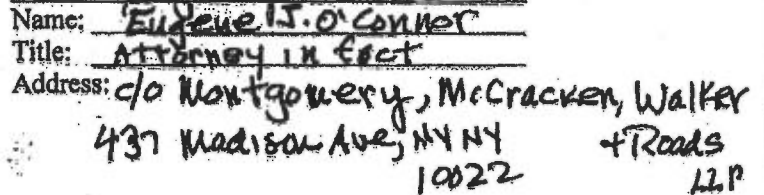 Name: Eugene J. O'Connor
Title: Attorney in fact
Address: c/o Montgomery, McCracken, Walker
437 Madison Ave, NY NY + Roads
10022 LLP